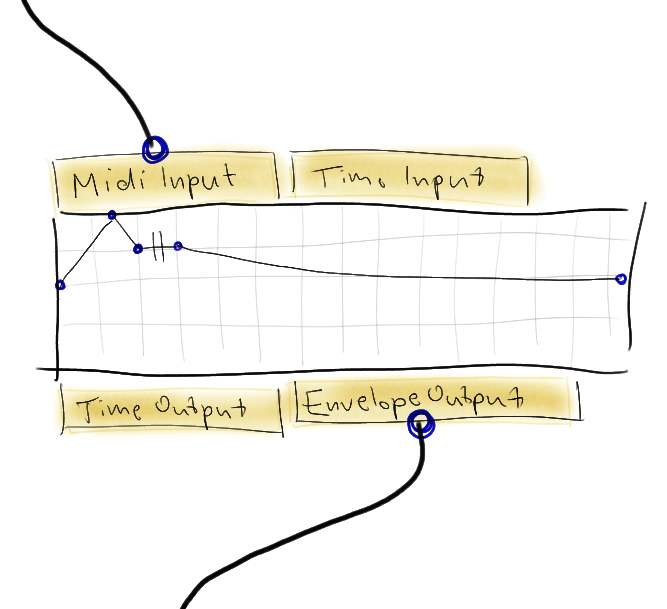 Midi Input
Time Input
Time Output
Envelope Output